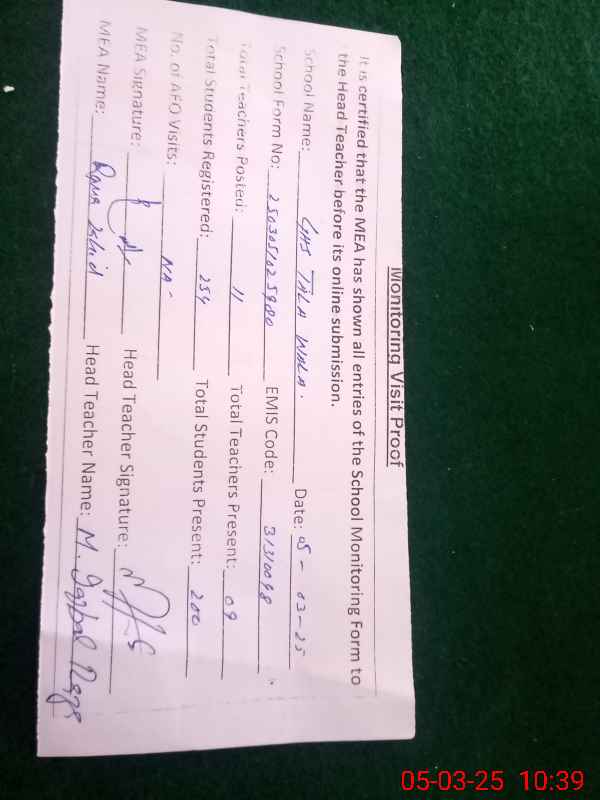 Monitoring Visit Proof
It is certified that the MEA has shown all entries of the School Monitoring Form to
the Head Teacher before its online submission.
School Name: GHS TALA WALA. Date: 05-03-25
School Form No: EMIS Code: 31310098
Total Teachers Posted: 11 Total Teachers Present: 09
Total Students Registered: 254 Total Students Present: 200
No. of AEO Visits: NA-
MEA Signature: Head Teacher Signature:
MEA Name: Head Teacher Name: M. Iqbal
05-03-25 10:39